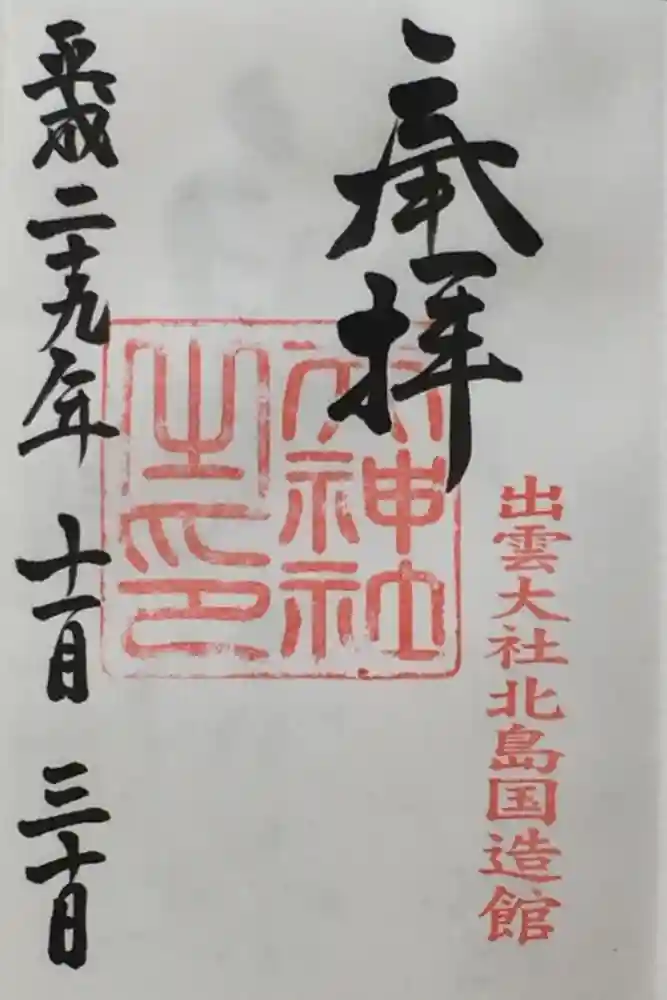 奉拝
出雲大社北島国造館
神社
之印
平成二十九年 十一月 三十日